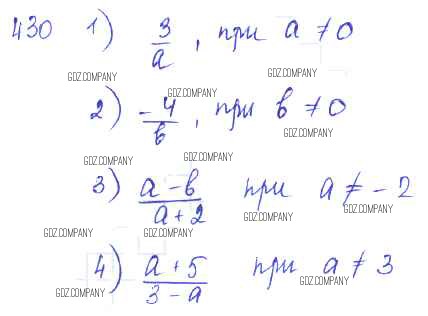 430 1) 3/a, при a ≠ 0
GDZ.COMPANY GDZ.COMPANY
GDZ.COMPANY
2) -4/в, при в ≠ 0
GDZ.COMPANY
GDZ.COMPANY GDZ.COMPANY
3) a-в/a+2 при a ≠ -2
GDZ.COMPANY GDZ.COMPANY
GDZ.COMPANY GDZ.COMPANY
4) a+5/3-a при a ≠ 3
GDZ.COMPANY GDZ.COMPANY